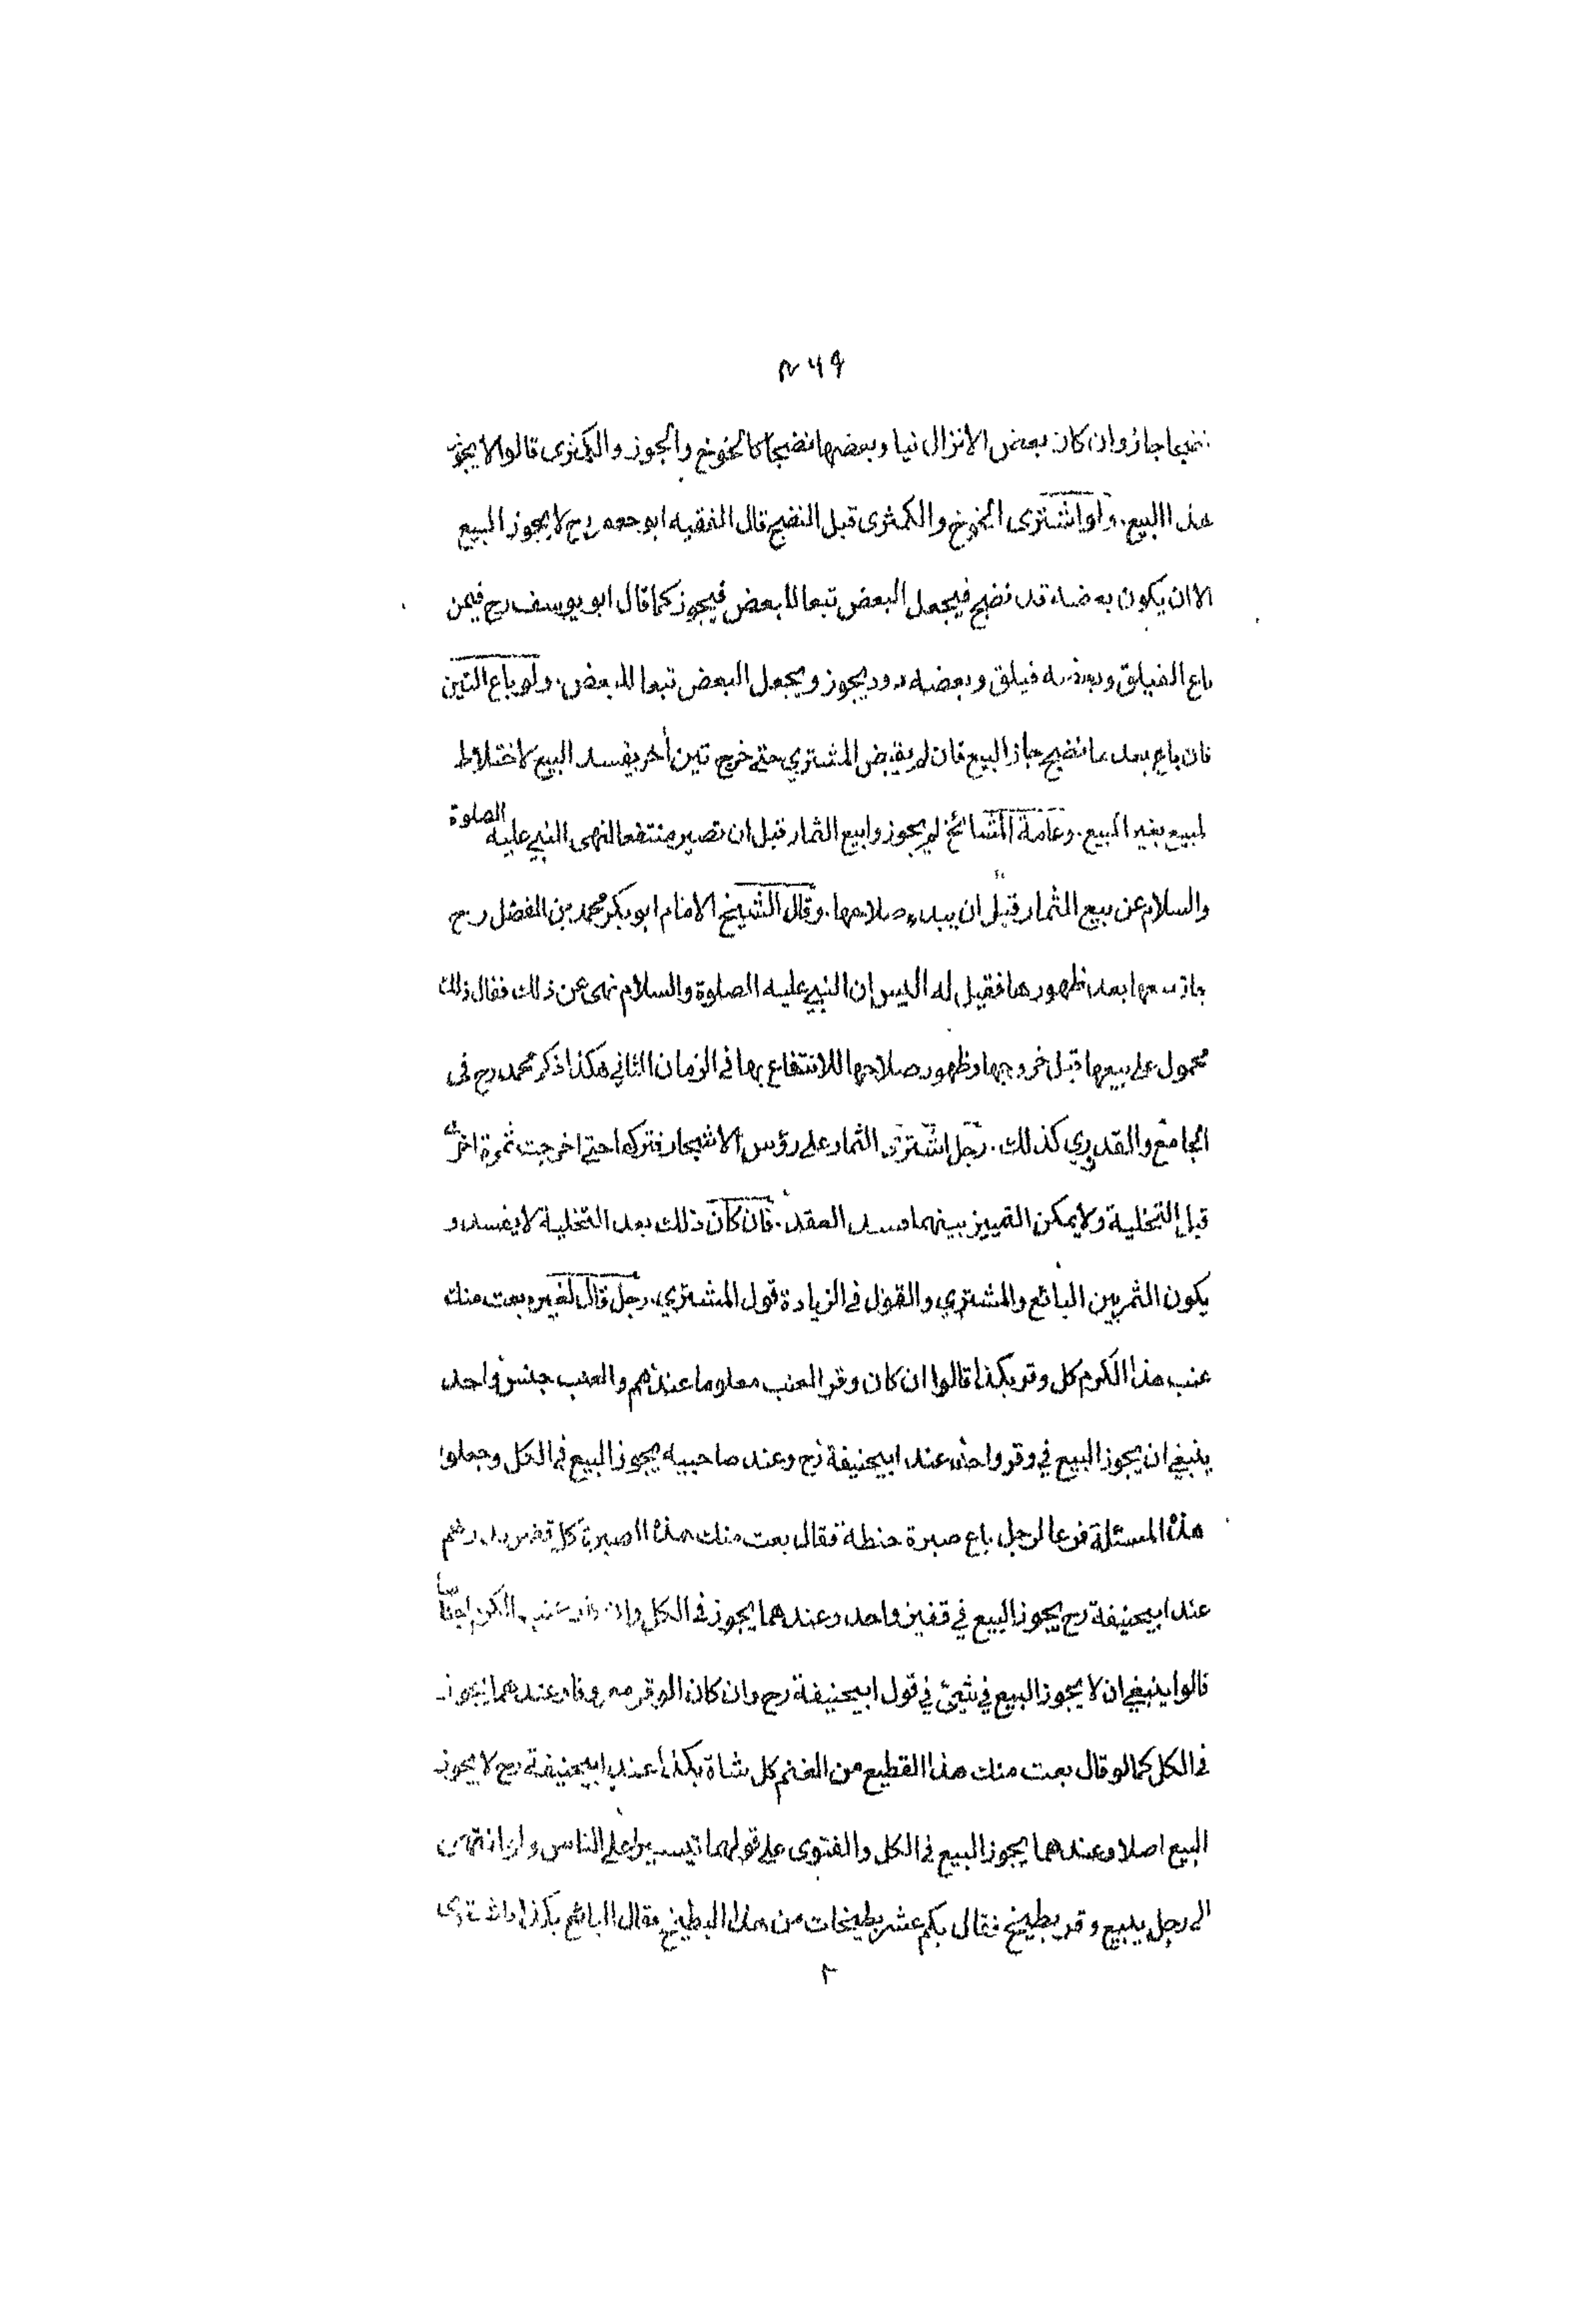 ٢٦٩
نضيجا جاز وان كان بعض الانزال نيا وبعضها نضيجا كالخوخ والجوز والكمثرى قالوا لا يجوز
هذا البيع. ولو اشترى الخوخ والكمثرى قبل النضج قال الفقيه ابو جعفر رح لا يجوز البيع
الا ان يكون بعضه قد نضج فيجعل البعض تبعا للبعض فيجوز كما قال ابو يوسف رح فيمن
باع الفيلق وبعضه فيلق وبعضه دود يجوز ويجعل البعض تبعا للبعض. ولو باع التين
فان باع بعد ما نضج جاز البيع فان لم يقبض المشتري حتى خرج تين أخر يفسد البيع لاختلاط
لمبيع بغير المبيع. وعامة المشائخ لم يجوزوا بيع الثمار قبل ان تصير منتفعا لنهى النبي عليه الصلوة
والسلام عن بيع الثمار قبل ان يبدء صلاحها. وقال الشيخ الامام ابو بكر محمد بن الفضل رح
جاز بيعها بعد ظهورها فقيل له اليس ان النبي عليه الصلوة والسلام نهى عن ذلك فقال ذلك
محمول على بيعها قبل خروجها وظهور صلاحها للانتفاع بها في الزمان الثاني هكذا ذكر محمد رح فى
الجامع والقدوري كذلك. رجل اشترى الثمار على رؤس الاشجار فتركها حتى اخرجت ثمرة اخرى
قبل التخلية ولا يمكن التمييز بينهما فسد العقد. فان كان ذلك بعد التخلية لا يفسد و
يكون الثمر بين البائع والمشتري والقول في الزيادة قول المشتري. رجل قال لغيره بعت منك
عنب هذا الكرم كل وقر بكذا قالوا ان كان وقر العنب معلوما عندهم والعنب جنس واحد
ينبغي ان يجوز البيع في وقر واحد عند ابيحنيفة رح وعند صاحبيه يجوز البيع في الكل وجعلوا
هذه المسئلة فرعا لرجل باع صبرة حنطة فقال بعت منك هذه الصبرة كل قفيز بدرهم
عند ابيحنيفة رح يجوز البيع في قفيز واحد وعندهما يجوز فى الكل وان كان عنب الكرم اجناسا
قالوا ينبغي ان لا يجوز البيع في شيئ في قول ابيحنيفة رح وان كان الوقر معروفا وعندهما يجوز
فى الكل كما لو قال بعت منك هذا القطيع من الغنم كل شاة بكذا عند ابيحنيفة رح لا يجوز
البيع اصلا وعندهما يجوز البيع فى الكل والفتوى على قولهما تيسيرا على الناس ولو انتهى
الى رجل يبيع وقر بطيخ فقال بكم عشر بطيخات من هذا البطيخ فقال البائع بكذا واشترى
٢